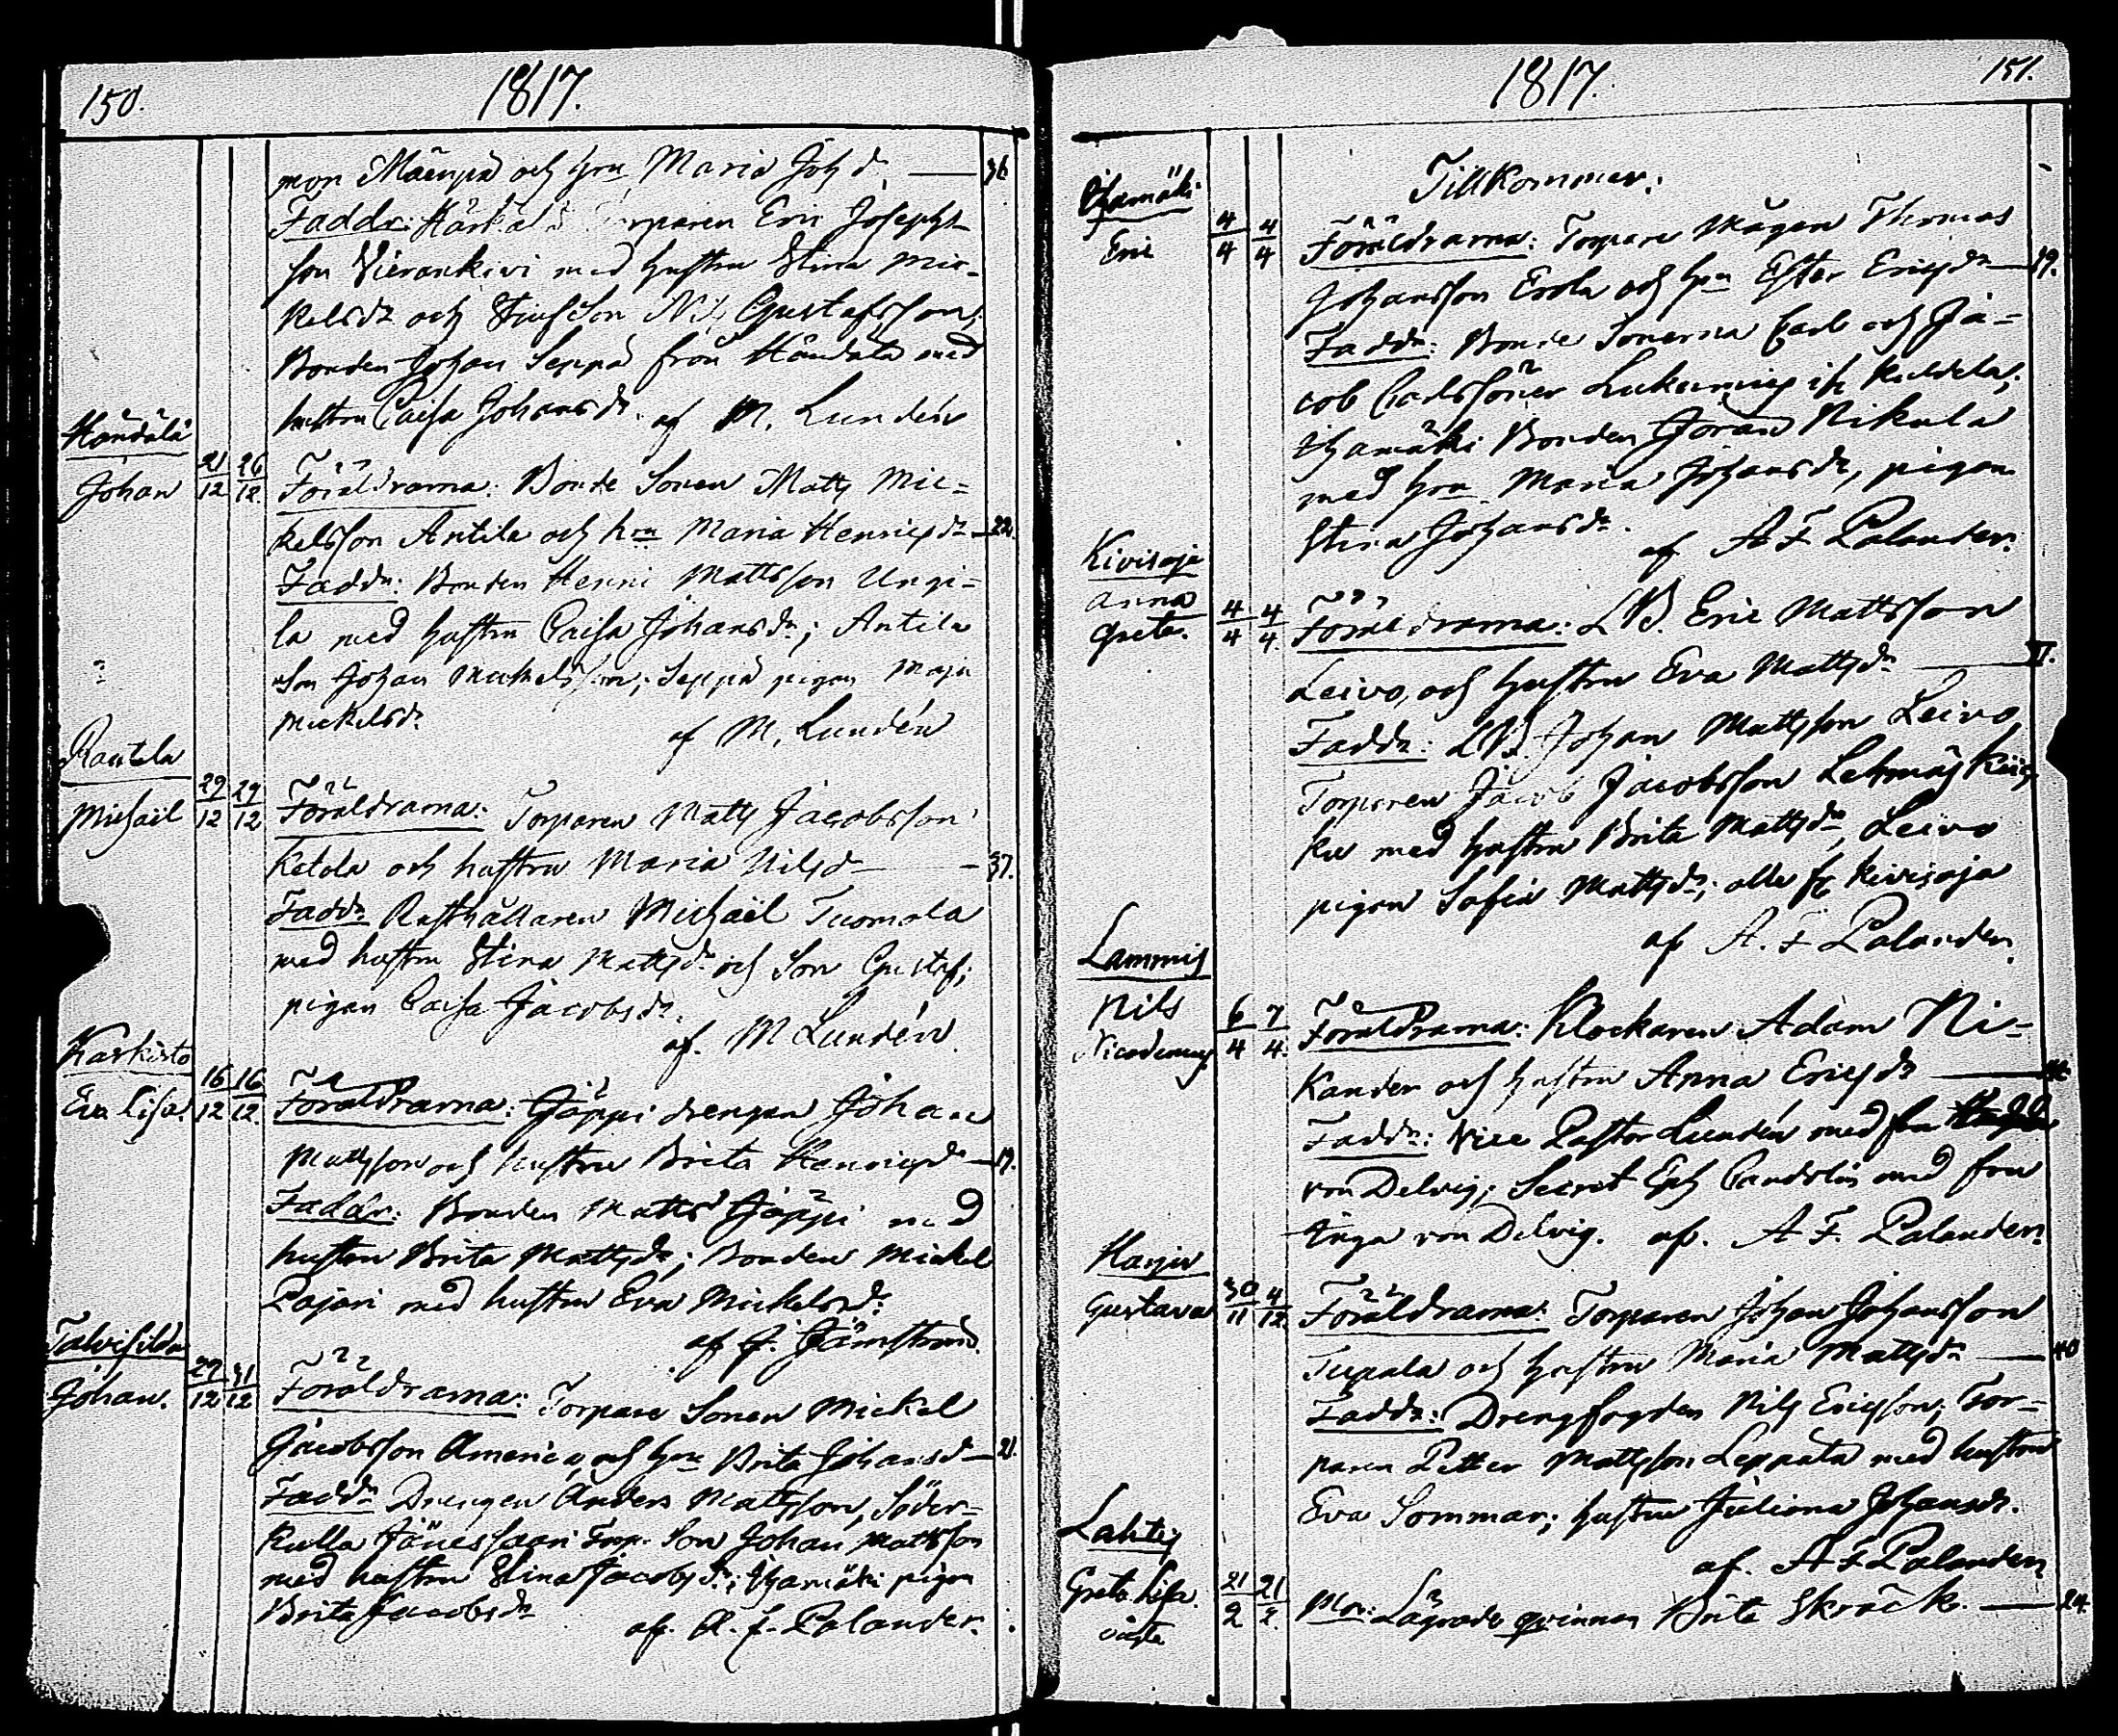 150.
1817.
mon Mäenpä och hru Maria Joh d.
36
Faddr: Härkälä Torparen Eric Josephs-
son Vierankivi med hustru Stina Mic-
kelsdr och StiufSon Nils Gustafsson;
Bonden Johan Seppä från Händälä med
hustru Caisa Johansdr. af M. Lundén
Händälä
Johan
21/12 26/12.
Föräldrarna: Bonde Sonen Matts Mic-
kelsson Antila och hru Maria Henricsdr
22.
Faddr: Bonden Henric Mattsson Ungi-
la med hustru Caisa Johansdr; Antila
Son Johan Mickelsson; Seppä pigan Maja
Mickelsdr.
af M. Lundén
Rantela
Michaël
29/12 29/12
Föräldrarna: Torparen Matts Jacobsson
Ketola och hustru Maria Nilsdr
37.
Faddr Rusthållaren Michaël Tuomola
med hustru Stina Mattsdr och Son Gustaf;
pigan Caisa Jacobsdr.
af. M Lundén
Karkisto
Eva Lisa.
16/12 16/12.
Föräldrarna: Jäppi drengen Johan
Mattsson och hustru Brita Henricsdr
19.
Faddr: Bonden Matts Jäppi med
hustru Brita Mattsdr; Bonden Mickel
Pajari med hustru Eva Mickelsdr.
af G.
Talvisilda
Johan.
27/12 31/12
Föräldrarna: Torpare Sonen Mickel
Jacobsson America, och hru Brita Johansdr
21.
Faddr Drengen Anders Mattsson, Söder-
kulla Jänessaari Torp. Son Johan Mattsson
med hustru Stina Jacobsdr; Ojamäki pigan
Brita Jacobsdr
af. A. F. Palander.
1817.
151.
Tillkommer.
Ojamäki
Eric
4/4 4/4
Föräldrarna: Torpare Mågen Thomas
Johansson Erola och hru Ester Ericsdr
29.
Faddr: Bonde Sönerna Carl och Ja-
cob Carlssöner
Ojamäki Bonden Jöran Nikula
med hru Maria Johansdr, pigan
Stina Johansdr.
af A F Palander.
Kivisoja
Anna
Greta.
4/4 4/4.
Föräldrarna: LB. Eric Mattsson
Leivo, och hustru Eva Mattsdr
Faddr: LB. Johan Mattsson Leivo,
Torparen Jacob Jacobsson
med hustru Brita Mattsdr, Leivo
pigan Sofia Mattsdr; alla fr Kivisoja
af A. F Palander.
Lammis
Nils
Nicodemus
6/4 7/4.
Föräldrarna: Klockaren Adam Ni-
kander och hustru Anna Ericsdr
Faddr: Vice Pastor Lundén med fru
von Delvig; Secret med fru
Inga von Delvig. af. A F. Palander.
Harju
Gustava
30/11 4/12.
Föräldrarna: Torparen Johan Johansson
Tupala och hustru Maria Mattsdr
40
Faddr: Drengfogden Nils Ericsson; Tor-
paren Petter Mattsson Leppälä med hustru
Eva Sommar; hustru Juliana Johansdr.
af. A F Palander
Lahtis
Greta Lisa.
oägta
21/2 21/2.
Mor: Lägrade qvinnan Brita Skräck.
24.